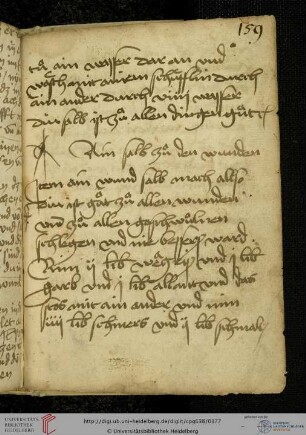 159
tů ain wasser dar an vnd
wesch mit ainem schüfflin durch
ain ander durch viiij wasser
Die salb ist zů allen dingen gůt
Ain salb zů den wunden
Item ain wund salb mach also
Die ist gůt zů allen wunden
vnd zů allen geschwulnen
schlegen vnd nie besser ward
Nim ij lib vnd j lib
harb vnd j lib allant vnd das
stos mit ain ander vnd nim
iiij lib schmers vnd ij lib schmal
UNIVERSITÄTS-
BIBLIOTHEK
HEIDELBERG
http://digi.ub.uni-heidelberg.de/diglit/cpg638/0377
© Universitätsbibliothek Heidelberg